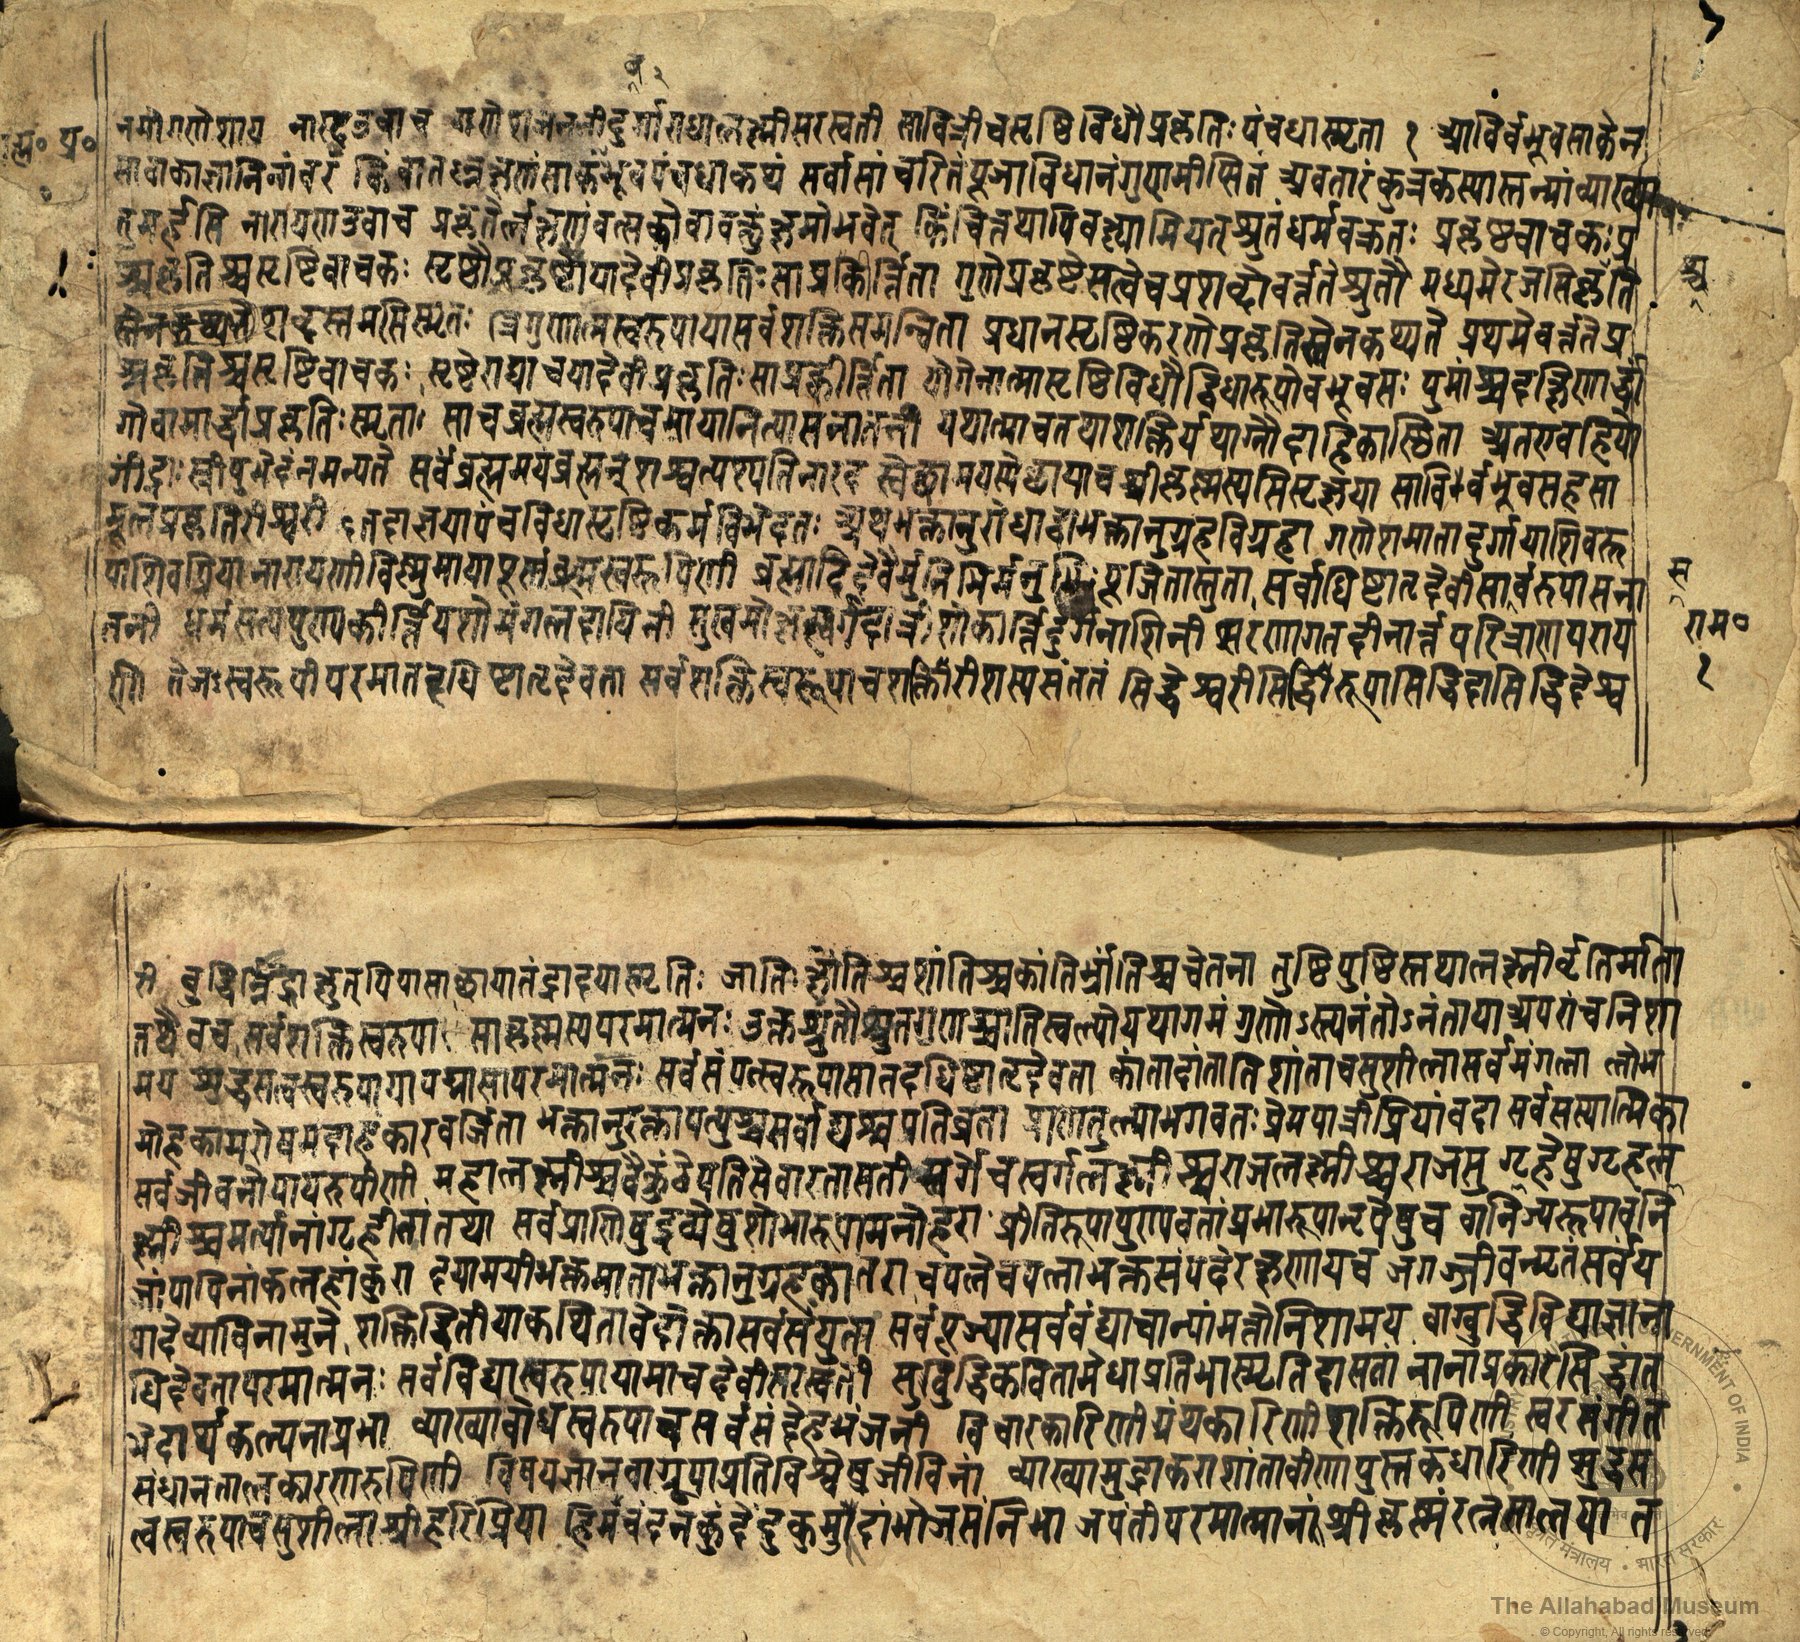 नमोगणेशाय नारदउवाच गणेशजननीदुर्गाराधालक्ष्मीसरस्वती सावित्रीचसृष्टिविधौप्रकृतिः पंचधास्मृता १ आविर्वभूवसाकेन
सावाकाज्ञानिनांवर किंवातल्लक्षणंसाकंभूवपंचधाकथं सर्वासांचरितंपूजाविधानंगुणमीप्सितं अवतारंकुत्रकस्यास्तन्मांव्याख्या
तुमर्हसि नारायणउवाच प्रकृतेर्लक्षणंवत्सकोवावक्तुंक्षमोभवेत् किंचित्तथापिवक्ष्यामियत्श्रुतंधर्मवक्त्रतः प्रकृष्टवाचकःप्र
श्चकृतिश्चसृष्टिवाचकः सृष्टौप्रकृष्टायादेवीप्रकृतिःसाप्रकीर्त्तिता गुणेप्रकृष्टेसत्वेचप्रशब्दोवर्त्ततेश्रुतौ मध्यमेरजसिकृति
शब्दस्तमसिस्मृतः त्रिगुणात्मस्वरुपायासर्वशक्तिसमन्विता प्रधानसृष्टिकरणेप्रकृतिस्तेनकथ्यते प्रथमेवर्त्ततेप्र
श्चकृतिश्चसृष्टिवाचकः सृष्टेराद्याचयादेवीप्रकृतिःसाप्रकीर्त्तिता योगेनात्मासृष्टिविधौद्विधारूपोवभूवसः पुमांश्चदक्षिणार्द्धां
गोवामार्द्धाप्रकृतिःस्मृताः साचब्रह्मस्वरुपाचमायानित्यासनातनी यथात्माचतथाशक्तिर्यथाग्नौदाहिकास्थिता अतएवहियो
गींद्राःस्त्रीपुंभेदंनमन्यते सर्वंब्रह्ममयंब्रह्मन्शश्वत्पश्यतिनारद स्वेच्छामयस्येच्छयाचश्रीकृष्णस्यसिसृक्षया साविर्वभूवसहसा
मूलप्रकृतिरीश्वरी तदाज्ञयापंचविधासृष्टिकर्मविभेदतः अथभक्तानुरोधाद्वाभक्तानुग्रहविग्रहा गणेशमातादुर्गायाशिवरू
पाशिवप्रियानारायणीविष्णुमायापूर्णाब्रह्मस्वरूपिणी ब्रह्मादिदेवैर्मुनिभिर्मनुभिःपूजितास्तुता सर्वाधिष्टातृदेवीसार्वरुपासना
तनी धर्मसत्यपुण्यकीर्त्तियशोमंगलदायिनी सुखमोक्षस्वर्गदात्रीशोकार्त्तिदुर्गनाशिनी शरणागतदीनार्त्तपरित्राणपराय
णी तेजःस्वरूपीपरमातदधिष्टातृदेवता सर्वशक्तिस्वरूपाचशक्तिरीशस्यसंततं सिद्धेश्वरीसिद्धिरूपासिद्धिदासिद्धिदेश्व
अ
स
राम॰
१
री बुद्धिर्निद्राक्षुत्पिपासाछायातंद्रादयास्मृतिः जातिःक्षांतिश्चशांतिश्चकांतिर्भ्रांतिश्चचेतना तुष्टिपुष्टिस्तथालक्ष्मीर्वृतिर्माता
तथैवच सर्वशक्तिस्वरुपा साकृष्णस्यपरमात्मनः उक्तश्रुतौश्रुतगुणश्चातिस्वल्पोयथागमं गुणोऽस्त्यनंतोऽनंतायाअपरांचनिशा
मय शुद्धसत्वस्वरुपायापद्मासापरमात्मनः सर्वसंपत्स्वरूपासातदधिष्टातृदेवता कांतादांतातिशांताचसुशीलासर्वमंगला लोभ
मोहकामरोषमदाहंकारवर्जिता भक्तानुरक्तापत्युश्चसर्वाद्यश्चपतिव्रता प्राणतुल्याभगवतःप्रेमपात्रीप्रियांवदा सर्वसस्यात्मिका
सर्वजीवनोपायरुपीणी महालक्ष्मीश्चवैकुंठेपतिसेवारतासती स्वर्गेचस्वर्गलक्ष्मीश्चराजलक्ष्मीश्चराजसु गृहेषुगृहल
क्ष्मीश्चमर्त्यानांगृहीतांतथा सर्वप्राणिषुद्रव्येषुशोभारुपामनोहरा प्रीतिरुपापुण्यवतांप्रभारूपानृपेषुच वानिज्यरूपावनि
जांपापिनांकलहांकुरा दयामयीभक्तमाताभक्तानुग्रहकातरा चपलेचपलाभक्तसंपदंरक्षणायच जगज्जीवन्मृतंसर्वंय
यादेव्याविनामुने शक्तिद्वितीयाकथितावेदोक्तासर्वसंयुता सर्वपूज्यासर्ववंद्याचान्यांमत्तोनिशामय वाग्बुद्धिविद्याज्ञाना
धिदेवतापरमात्मनः सर्वविद्यास्वरुपायासाचदेवीसरस्वती सुबुद्धिकवितामेधाप्रतिभास्मृतिदासतां नानाप्रकारसिद्धांत
भेदार्थकल्पनाप्रभा व्याख्यावोधस्वरुपाचसर्वसंदेहभंजनी विचारकारिणीग्रंथकारिणीशक्तिरूपिणी स्वरसंगीत
संधानतालकारणरुपिणी विषयज्ञानवाग्रूपाप्रतिविश्वेषुजीविनां व्याख्यामुद्राकराशांतावीणापुस्तकधारिणी शुद्धस
त्वस्वरुपाचसुशीलाश्रीहरिप्रिया हिमचंदनकुंदेंदुकुमुदांभोजसंनिभा जपंतीपरमात्मानंश्रीकृष्णंरत्नमालया त
The Allahabad Museum
© Copyright, All rights reserved